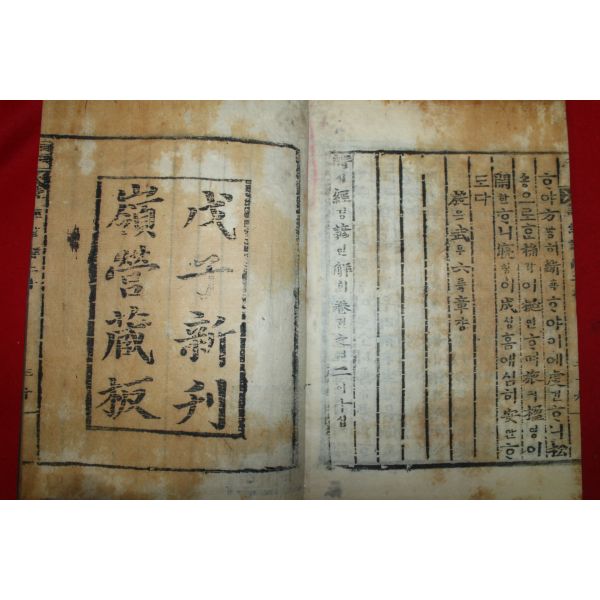 ᄒᆞ야方방히斲착ᄒᆞ야이에虔건ᄒᆞ니松
숑으로ᄒᆞᆫ桷각이梴연ᄒᆞ며旅려ᄒᆞᆫ楹영이
閑한ᄒᆞ니寢침이成셩홈애심히安안ᄒᆞ
도다
殷은武무六륙章쟝
詩시經경諺언解ᄒᆡ卷권之지二이十십
戊子新刊
嶺營藏板